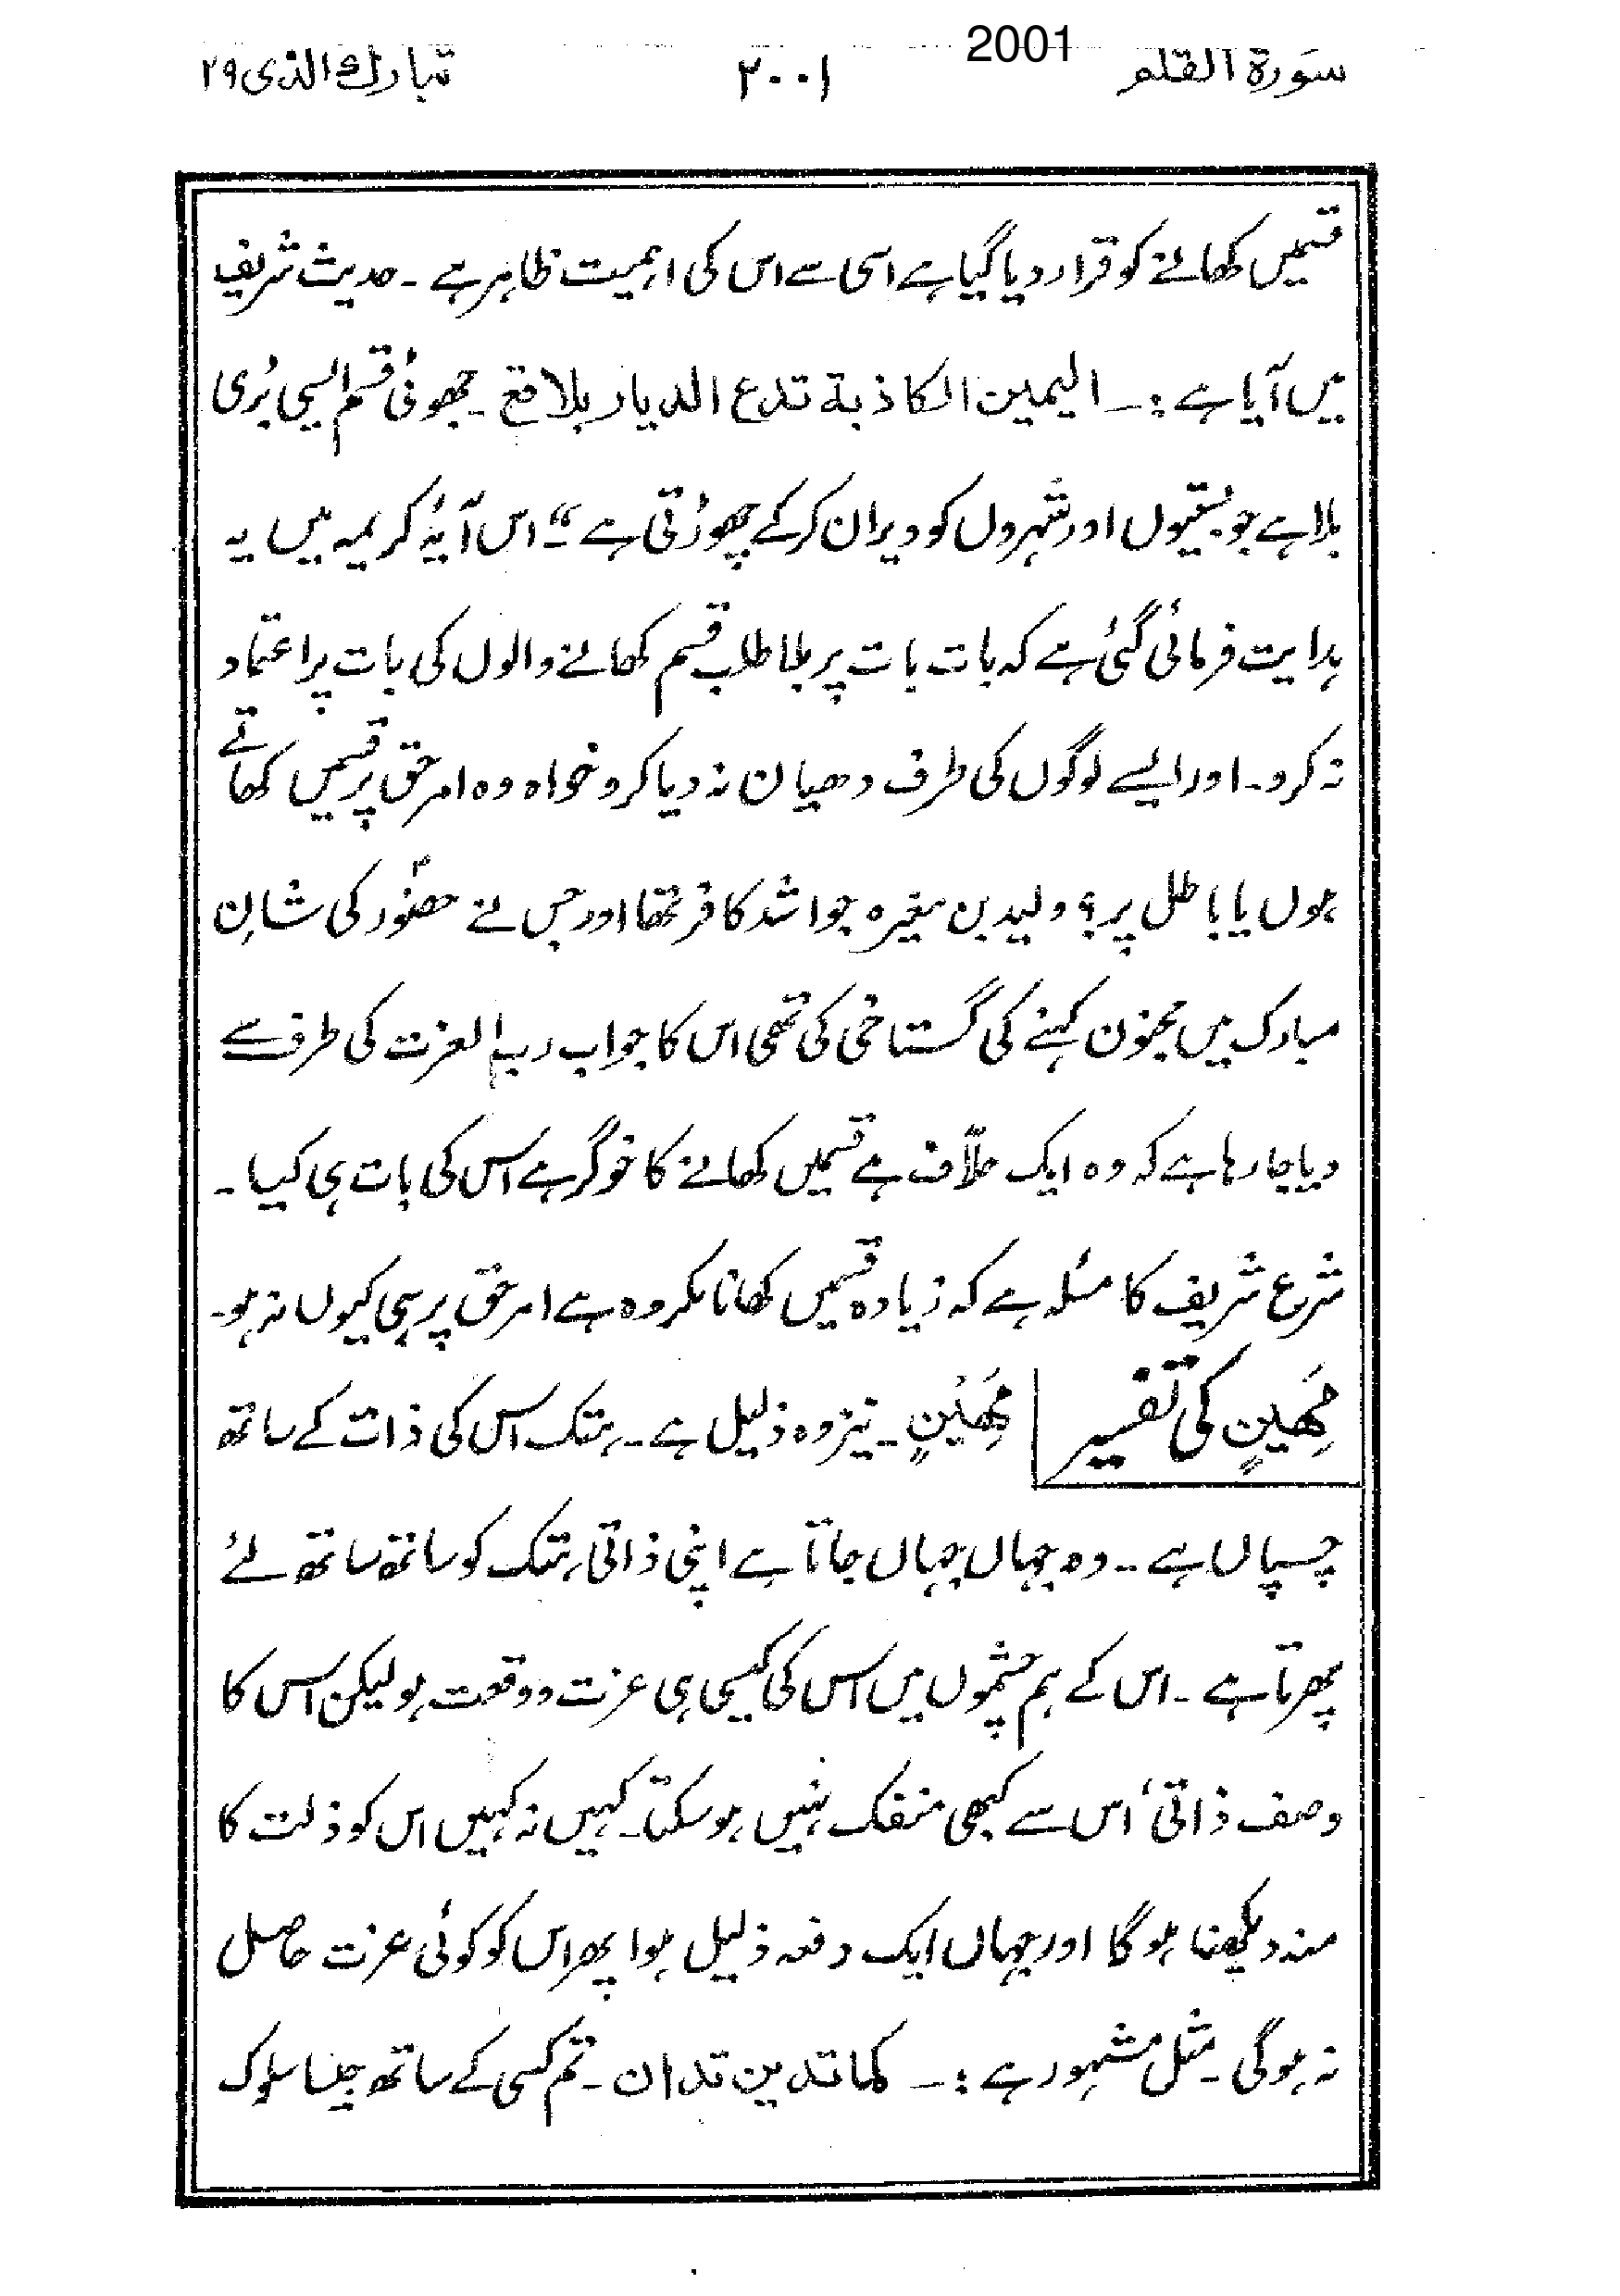 2001
سورة القلم ۲۰۰۱ تبارك الذی ۲۹
قسمیں کھانے کو قرار دیا گیا ہے اسی سے اس کی اہمیت ظاہر ہے ۔ حدیث شریف
میں آیا ہے :۔ الیمین الکاذبة تدع الدیار بلاقع ۔ جھوٹی قسم ایسی بُری
بلا ہے جو بستیوں اور شہروں کو ویران کر کے چھوڑتی ہے “۔ اس آیۂ کریمہ میں یہ
ہدایت فرمائی گئی ہے کہ بات بات پر بلا طلب قسم کھانے والوں کی بات پر اعتماد
نہ کرو۔ اور ایسے لوگوں کی طرف دھیان نہ دیا کرو خواہ وہ امر حق پر قسمیں کھاتے
ہوں یا باطل پر؟ ولید بن مغیرہ جو اشد کافر تھا اور جس نے حضورؐ کی شانِ
مبارک میں مجنون کہنے کی گستاخی کی تھی اس کا جواب رب العزت کی طرف سے
دیا جا رہا ہے کہ وہ ایک حلّاف ہے قسمیں کھانے کا خوگر ہے اس کی بات ہی کیا ۔
شرع شریف کا مسئلہ ہے کہ زیادہ قسمیں کھانا مکروہ ہے امر حق پر ہی کیوں نہ ہو۔
مَهِینٍ کی تفسیر | مَهِیْنٍ ۔ نیز وہ ذلیل ہے ۔ ہتک اس کی ذات کے ساتھ
چسپاں ہے ۔ وہ جہاں جہاں جاتا ہے اپنی ذاتی ہتک کو ساتھ ساتھ لئے
پھرتا ہے ۔ اس کے ہم چشموں میں اس کی کیسی ہی عزت و وقعت ہو لیکن اس کا
وصف ذاتی، اس سے کبھی منفک نہیں ہو سکتا۔ کہیں نہ کہیں اس کو ذلت کا
منہ دیکھنا ہو گا اور جہاں ایک دفعہ ذلیل ہوا پھر اس کو کوئی عزت حاصل
نہ ہو گی ۔ مثل مشہور ہے :۔ کما تدین تدان ۔ تم کسی کے ساتھ جیسا سلوک